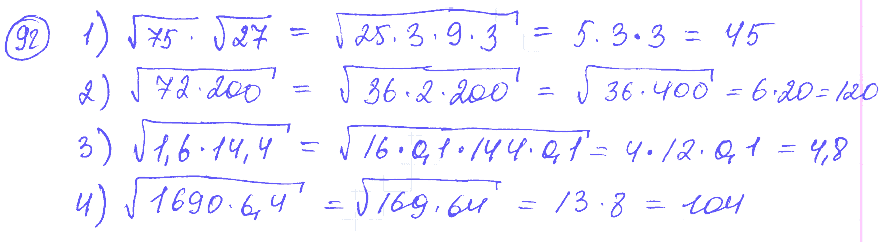 92 1) √75 · √27 = √25·3·9·3 = 5·3·3 = 45
2) √72·200 = √36·2·200 = √36·400 = 6·20=120
3) √1,6·14,4 = √16·0,1·144·0,1 = 4·12·0,1 = 4,8
4) √1690·6,4 = √169·64 = 13·8 = 104